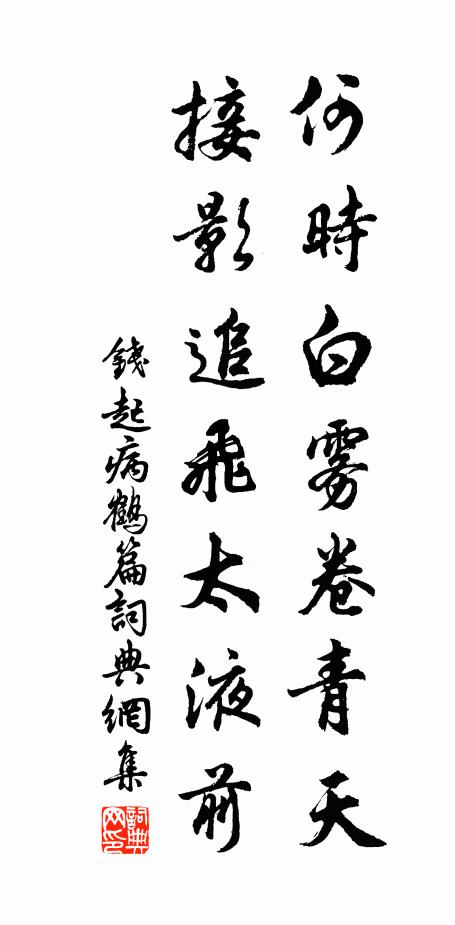 何時白雾卷青天
接影追飛太液前
錢起病鶴篇詞典網集
詞典
网印